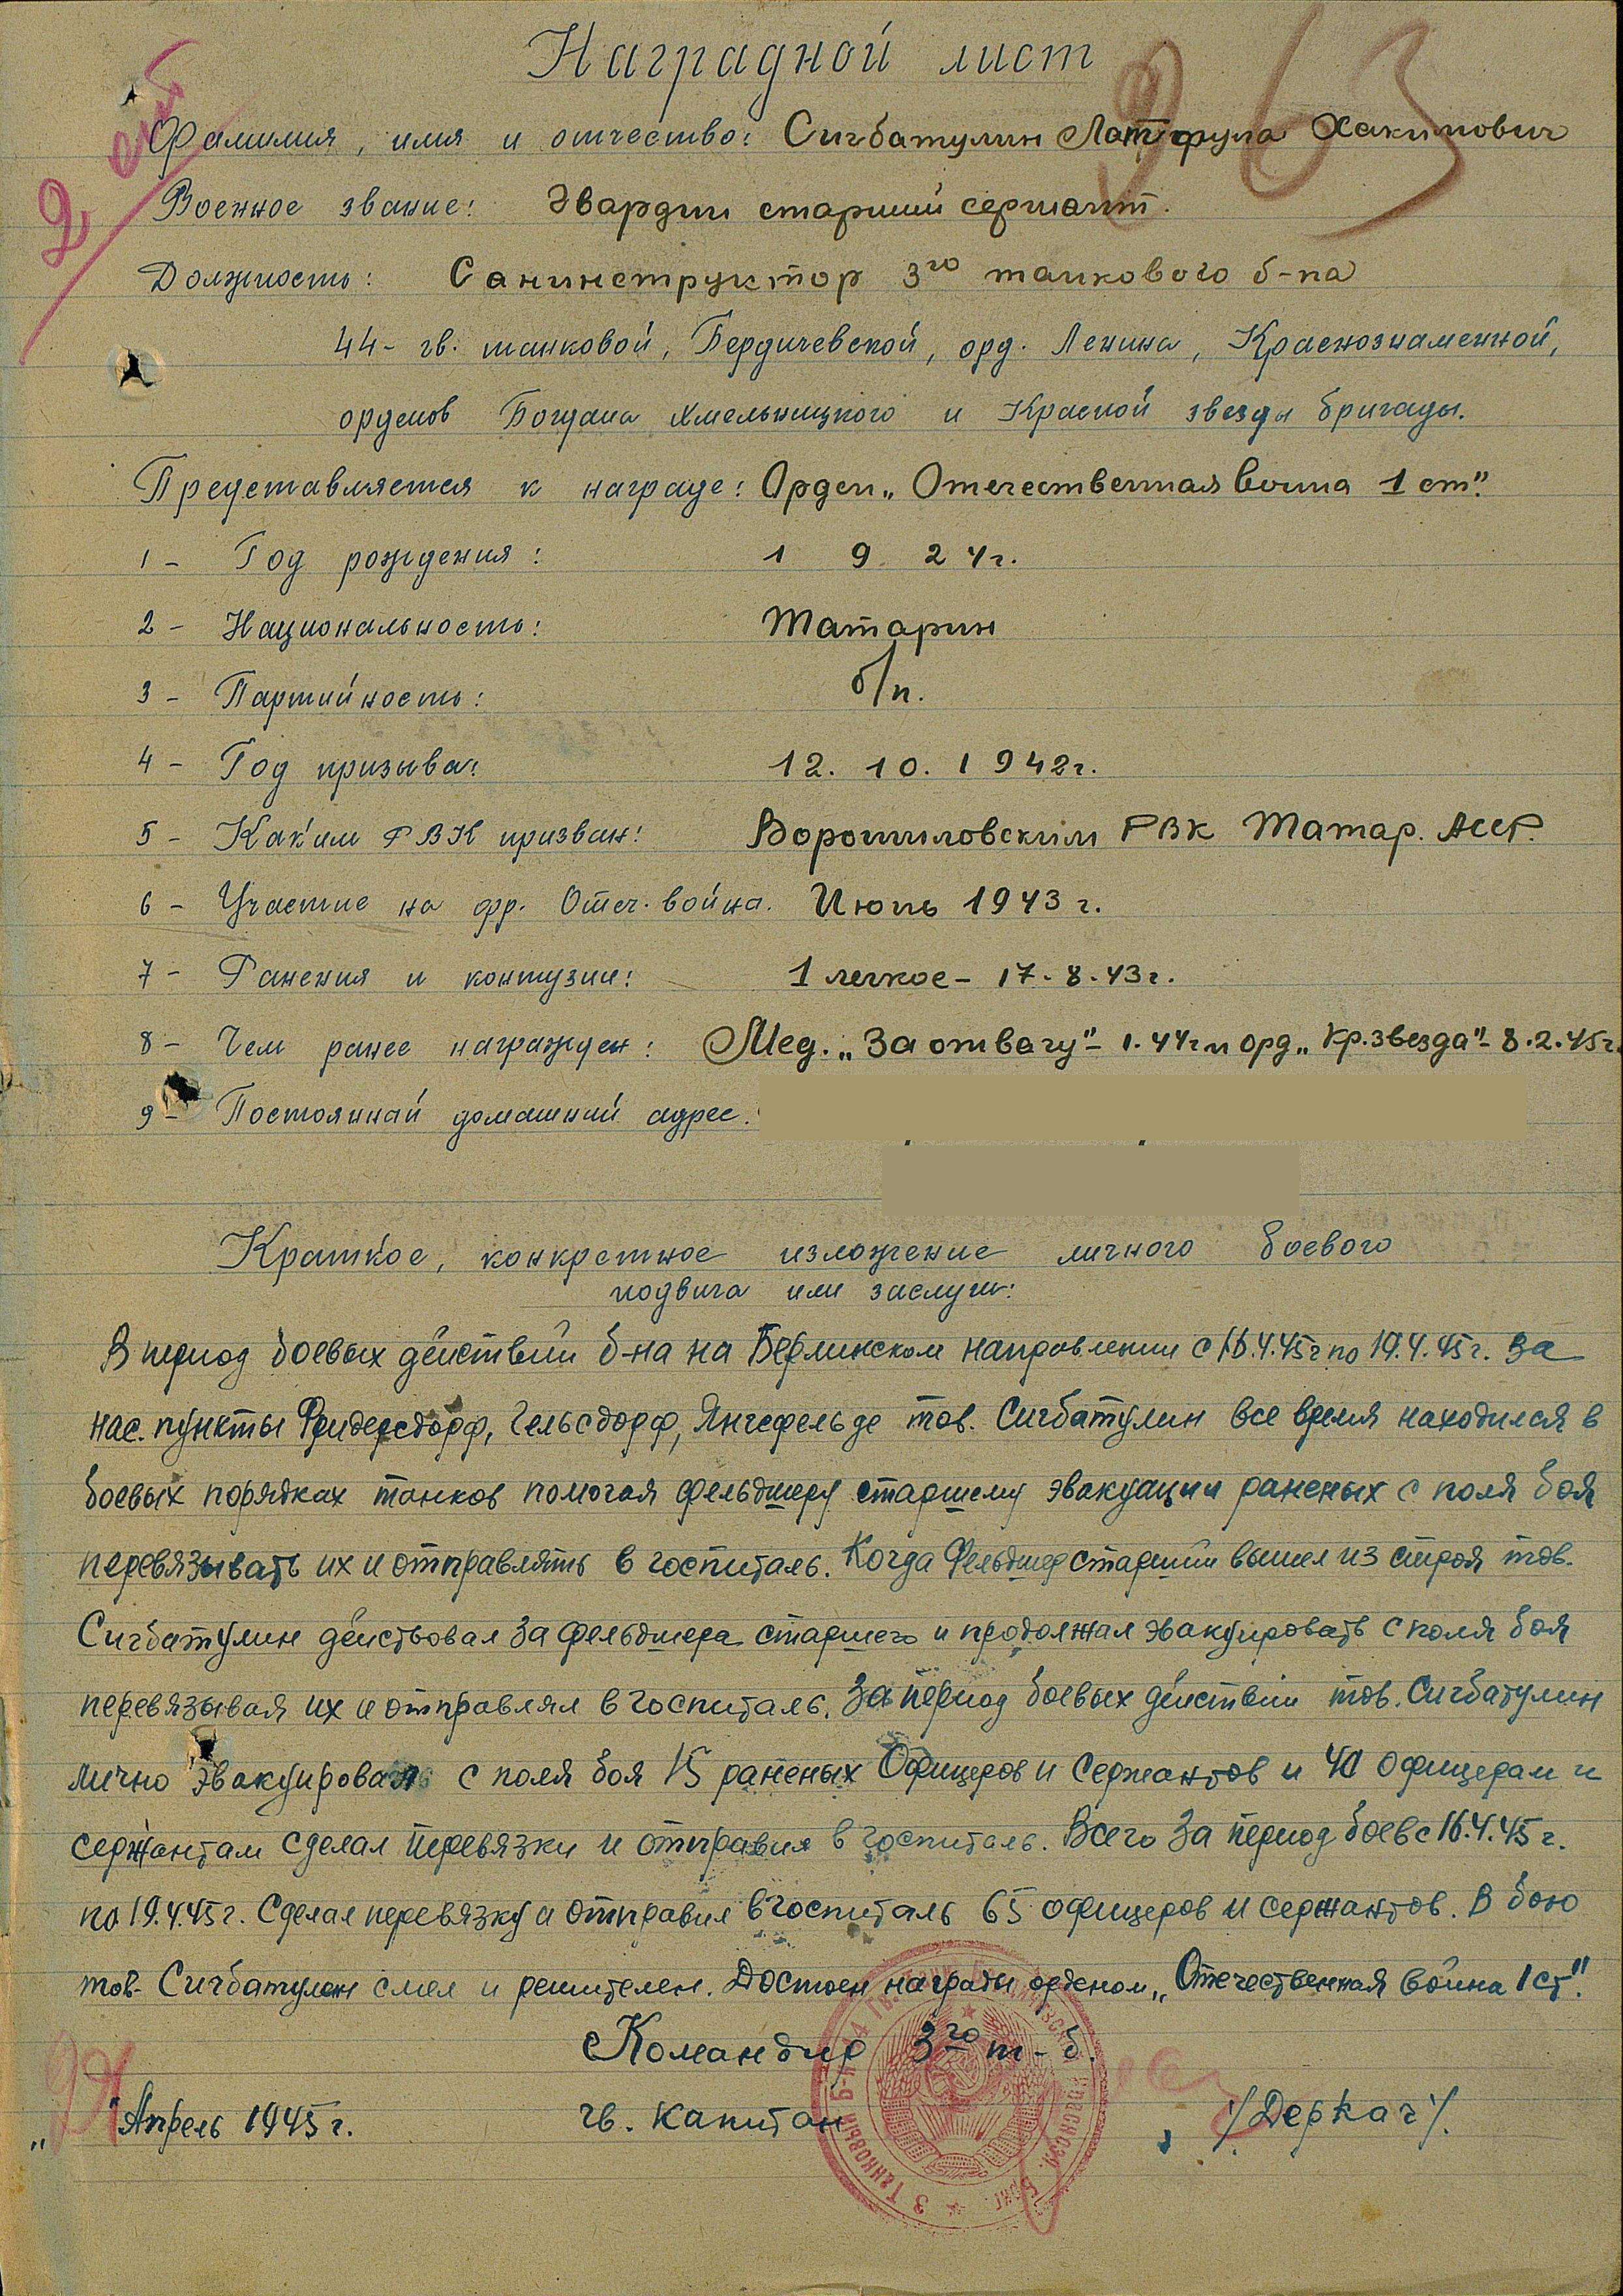 2 ст
963
Наградной лист
Фамилия, имя и отчество: Сигбатулин Латфула Хакимович
Военное звание: Гвардии старший сержант.
Должность: Санинструктор 3го танкового б-на
44- гв. танковой, Бердичевской, орд. Ленина, Краснознаменной,
орденов Богдана Хмельницкого и Красной звезды бригады.
Представляется к награде: Орден „Отечественная война 1 ст".
1 - Год рождения: 1924г.
2 - Национальность: Татарин
3 - Партийность: б/п.
4 - Год призыва: 12. 10. 1942г.
5 - Каким РВК призван: Ворошиловским РВК Татар. АССР.
6 - Участие на фр. Отеч. война. Июль 1943 г.
7 - Ранения и контузии: 1 легкое - 17.8.43г.
8 - Чем ранее награжден: Мед. „За отвагу" - 1.44г и орд „Кр.звезда" - 8.2.45г.
9 - Постоянный домашний адрес:
Краткое, конкретное изложение личного боевого
подвига или заслуги:
В период боевых действий б-на на Берлинском направлении с 16.4.45г по 19.4.45г. за
нас. пункты Фридерсдорф, Гельсдорф, Янгсфельде тов. Сигбатулин все время находился в
боевых порядках танков помогая фельдшеру старшему эвакуации раненых с поля боя
перевязывать их и отправлять в госпиталь. Когда Фельдшер старший вышел из строя тов.
Сигбатулин действовал за фельдшера старшего и продолжал эвакуировать с поля боя
перевязывая их и отправлял в госпиталь. За период боевых действий тов. Сигбатулин
лично эвакуировал с поля боя 15 раненых Офицеров и Сержантов и 40 офицерам и
сержантам сделал перевязки и отправил в госпиталь. Всего за период боев с 16.4.45г.
по 19.4.45г. Сделал перевязку и отправил в госпиталь 65 офицеров и сержантов. В бою
тов. Сигбатулин смел и решителен. Достоен награды орденом „Отечественная война 1 ст".
Командир 3го т-б.
гв. капитан /Деркач/.
„ Апрель 1945г.